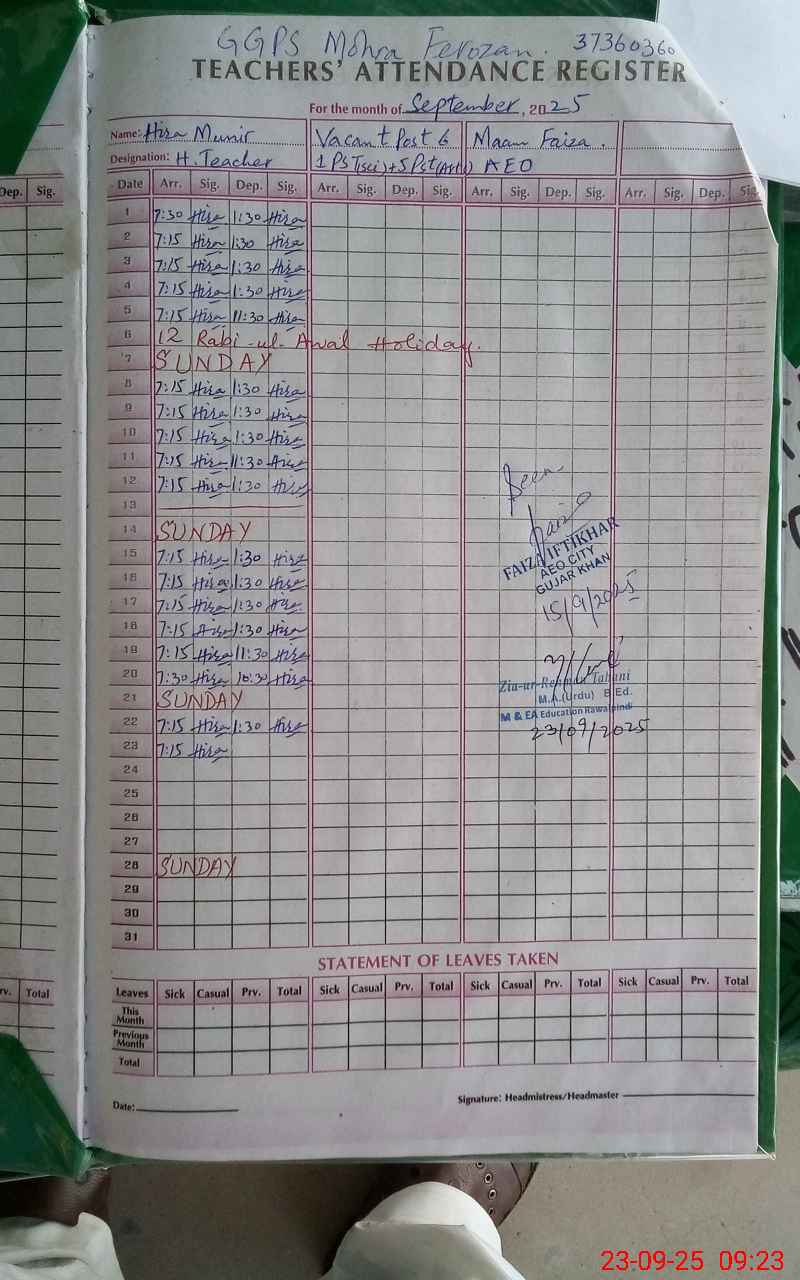 Dep. Sig.
GGPS Mohra Ferozan. 37360360
TEACHERS' ATTENDANCE REGISTER
For the month of September, 2025
Name: Hira Munir Vacant Post 6 Maam Faiza.
Designation: H. Teacher 1 PST(Sci)+5 Pst(Arts) AEO
Date Arr. Sig. Dep. Sig. Arr. Sig. Dep. Sig. Arr. Sig. Dep. Sig. Arr. Sig. Dep. Sig.
1 7:30 Hira 1:30 Hira
2 7:15 Hira 1:30 Hira
3 7:15 Hira 1:30 Hira
4 7:15 Hira 1:30 Hira
5 7:15 Hira 11:30 Hira
6 12 Rabi-ul-Awal Holiday.
7 SUNDAY
8 7:15 Hira 1:30 Hira
9 7:15 Hira 1:30 Hira
10 7:15 Hira 1:30 Hira
11 7:15 Hira 11:30 Hira
12 7:15 Hira 1:30 Hira
Seen
13
14 SUNDAY
Faiza
FAIZA IFTIKHAR
AEO CITY
GUJAR KHAN
15/9/2025
15 7:15 Hira 1:30 Hira
16 7:15 Hira 1:30 Hira
17 7:15 Hira 1:30 Hira
18 7:15 Hira 1:30 Hira
19 7:15 Hira 11:30 Hira
20 7:30 Hira 10:30 Hira
21 SUNDAY
Zia-ur-Rehman Tabani
M.A.(Urdu) B.Ed.
M & EA Education Rawalpindi
23/09/2025
22 7:15 Hira 1:30 Hira
23 7:15 Hira
24
25
26
27
28 SUNDAY
29
30
31
STATEMENT OF LEAVES TAKEN
rv. Total
Leaves Sick Casual Prv. Total Sick Casual Prv. Total Sick Casual Prv. Total Sick Casual Prv. Total
This Month
Previous Month
Total
Date: Signature: Headmistress/Headmaster
23-09-25 09:23